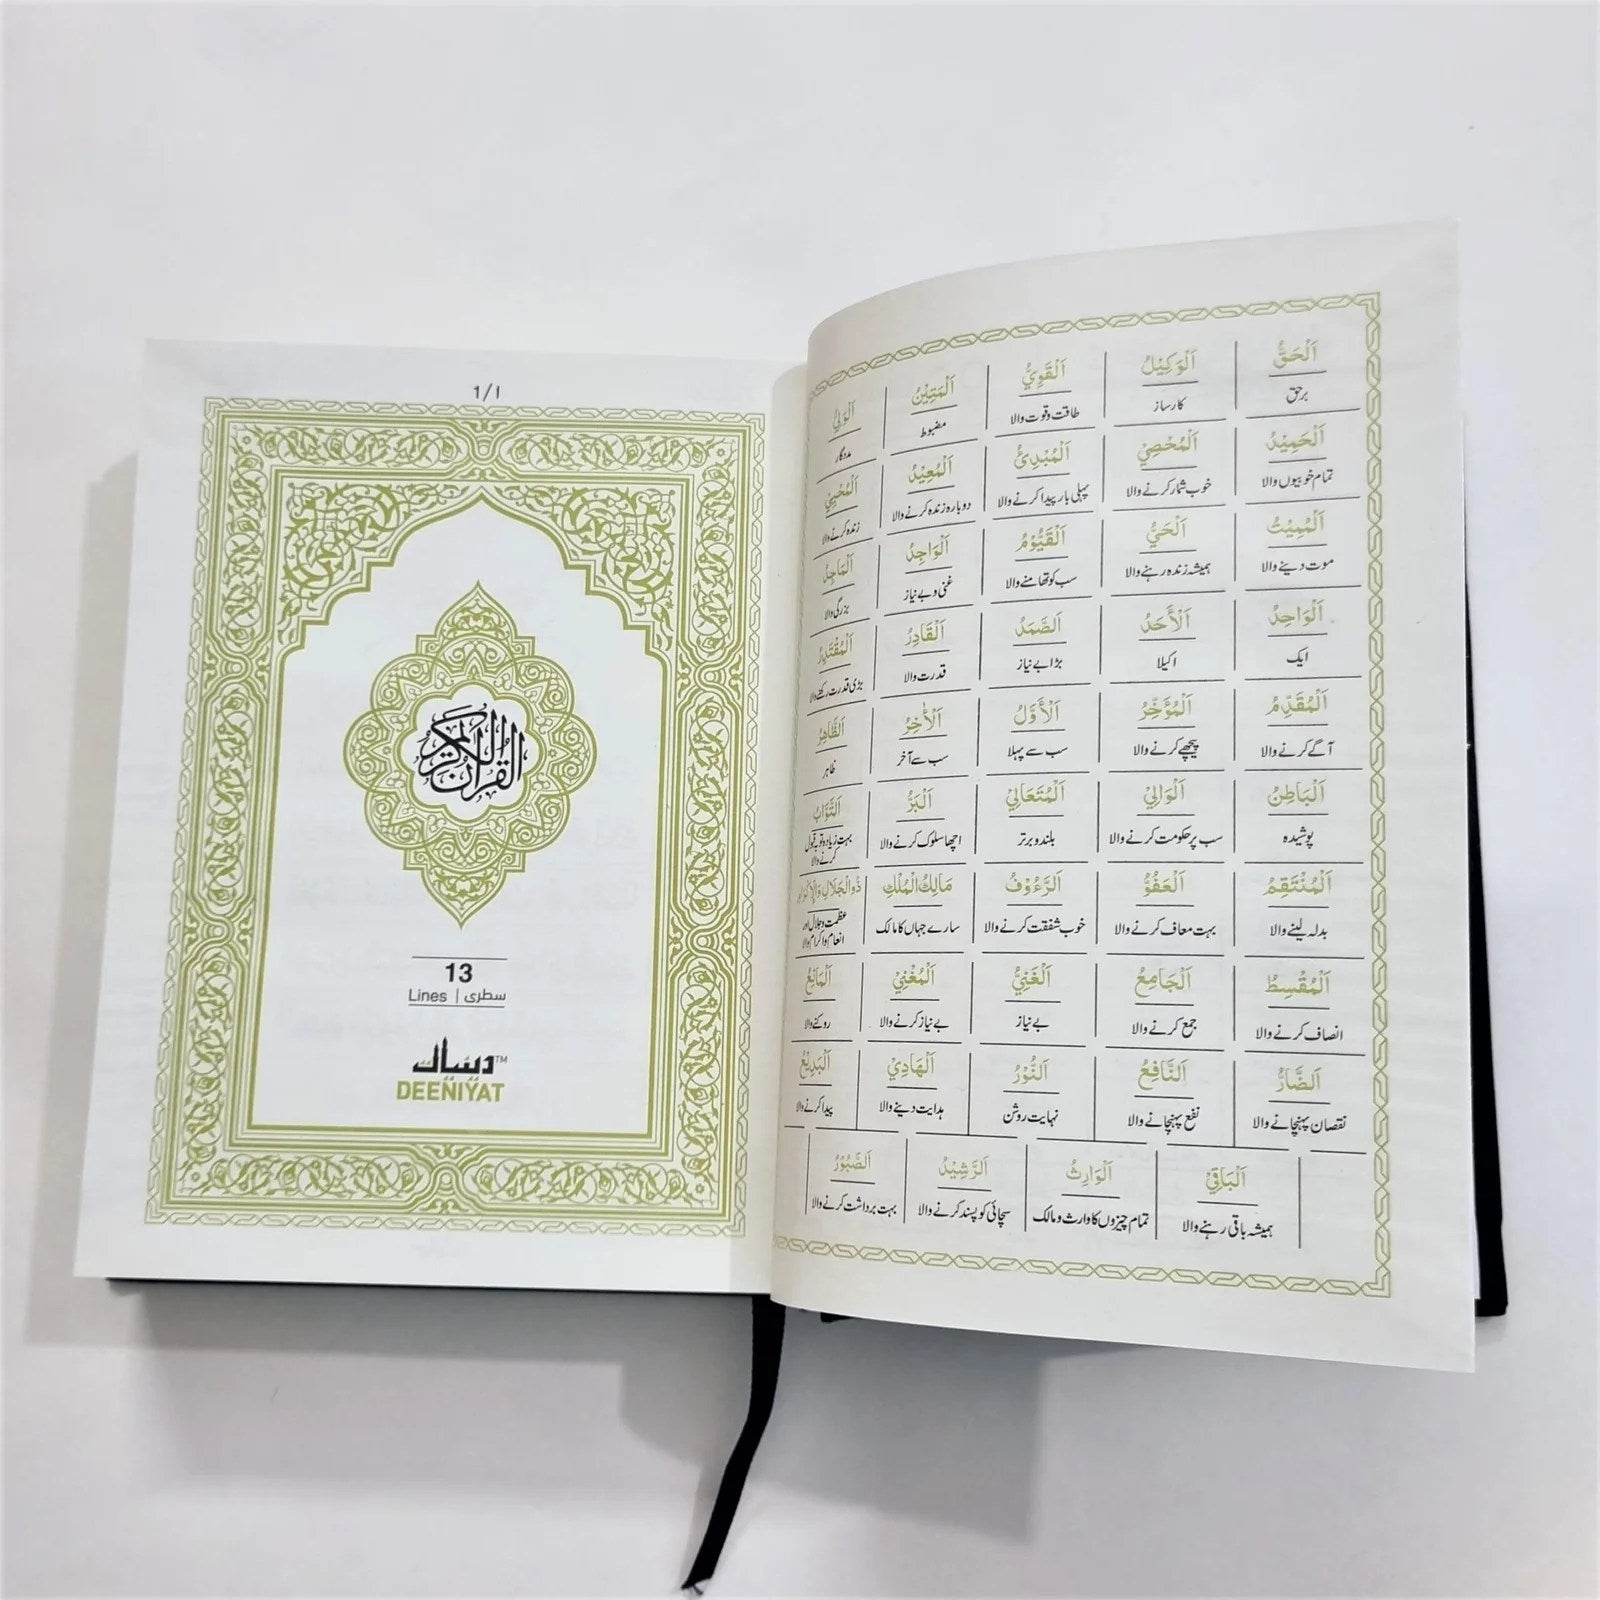 اَلْحَقُّ اَلْوَكِيْلُ اَلْقَوِيُّ اَلْمَتِيْنُ اَلْوَلِيُّ
برحق کارساز طاقت وقوت والا مضبوط مددگار
اَلْحَمِيْدُ اَلْمُحْصِيْ اَلْمُبْدِئُ اَلْمُعِيْدُ اَلْمُحْيِيْ
تمام خوبیوں والا خوب شمار کرنے والا پہلی بار پیدا کرنے والا دوبارہ زندہ کرنے والا زندہ کرنے والا
اَلْمُمِيْتُ اَلْحَيُّ اَلْقَيُّوْمُ اَلْوَاجِدُ اَلْمَاجِدُ
موت دینے والا ہمیشہ زندہ رہنے والا سب کو تھامنے والا غنی و بے نیاز بزرگی والا
اَلْوَاحِدُ اَلْأَحَدُ اَلصَّمَدُ اَلْقَادِرُ اَلْمُقْتَدِرُ
ایک اکیلا بڑا بے نیاز قدرت والا بڑی قدرت رکھنے والا
اَلْمُقَدِّمُ اَلْمُؤَخِّرُ اَلْأَوَّلُ اَلْأٰخِرُ اَلظَّاهِرُ
آگے کرنے والا پیچھے کرنے والا سب سے پہلا سب سے آخر ظاہر
اَلْبَاطِنُ اَلْوَالِيْ اَلْمُتَعَالِيْ اَلْبَرُّ اَلتَّوَّابُ
پوشیدہ سب پر حکومت کرنے والا بلند و برتر اچھا سلوک کرنے والا بہت زیادہ توبہ قبول کرنے والا
اَلْمُنْتَقِمُ اَلْعَفُوُّ اَلرَّءُوْفُ مَالِكُ الْمُلْكِ ذُوالْجَلَالِ وَالْإِكْرَامِ
بدلہ لینے والا بہت معاف کرنے والا خوب شفقت کرنے والا سارے جہاں کا مالک عظمت و جلال اور انعام و اکرام والا
اَلْمُقْسِطُ اَلْجَامِعُ اَلْغَنِيُّ اَلْمُغْنِيْ اَلْمَانِعُ
انصاف کرنے والا جمع کرنے والا بے نیاز بے نیاز کرنے والا روکنے والا
اَلضَّارُّ اَلنَّافِعُ اَلنُّوْرُ اَلْهَادِيْ اَلْبَدِيْعُ
نقصان پہنچانے والا نفع پہنچانے والا نہایت روشن ہدایت دینے والا پیدا کرنے والا
اَلْبَاقِيْ اَلْوَارِثُ اَلرَّشِيْدُ اَلصَّبُوْرُ
ہمیشہ باقی رہنے والا تمام چیزوں کا وارث و مالک سچائی کو پسند کرنے والا بہت برداشت کرنے والا
1/١
القرآن الكريم
13
Lines | سطری
دینیات™
DEENIYAT